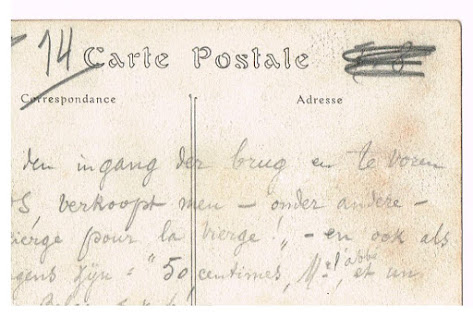 14
Carte Postale
Correspondance
Adresse
den ingang der brug en te voren
verkoopt men – onder andere –
cierge pour la vierge! „ – en ook als
zijn – " 50 centimes, Mr l'abbé, et un